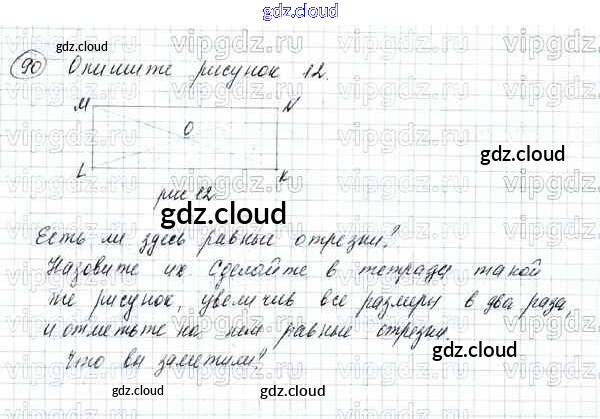 gdz.cloud
gdz.cloud
90 Опишите рисунок 12.
M N
O
gdz.cloud
L K
рис 12
gdz.cloud
Есть ли здесь равные отрезки?
Назовите их. Сделайте в тетради такой
же рисунок, увеличив все размеры в два раза,
и отметьте на нем равные отрезки.
gdz.cloud
Что вы заметили?
gdz.cloud
gdz.cloud